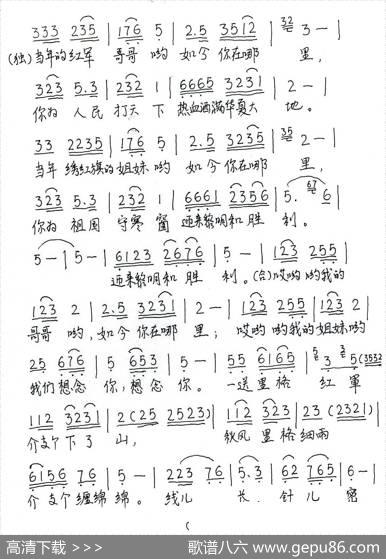 333 235 | 176 5 | 2.5 3512 | 32 3 - |
(独)当年的红军 哥哥 哟 如今 你在哪 里,
323 5.3 | 232 1 | 6665 3231 | 2 - |
你为 人民 打天 下 热血洒满华夏大 地。
33 2235 | 176 5 | 2.5 3235 | 35 2 - |
当年 绣红旗的姐妹 哟 如今 你在哪 里,
323 5.3 | 232 1 | 6661 2356 | 5. 67 6 |
你为 祖国 守寒窑 迎来黎明和胜 利。
5 - | 5 - | 6123 2676 | 5 - | 123 255 |
迎来黎明和胜 利。(合)哎哟哟我的
123 2 | 2.5 3231 | 2 - | 123 255 | 123 2 |
哥哥 哟,如今 你在哪 里; 哎哟哟我的姐妹哟
25 676 | 5 653 | 5 - | 55 6165 | 3 5(3532
我们想念 你,想念 你。 一送里格 红 軍
112 3231 | 2(25 2523) | 112 323 | 23 (2321) |
介支个下了 山, 秋风 里格细雨
6156 76 | 5 - | 223 76 | 5.3 | 62 765 | 6 - |
介支个缠绵 绵。 线儿 长. 针儿 密
高清下载 >>> 歌谱八六 www.gepu86.com